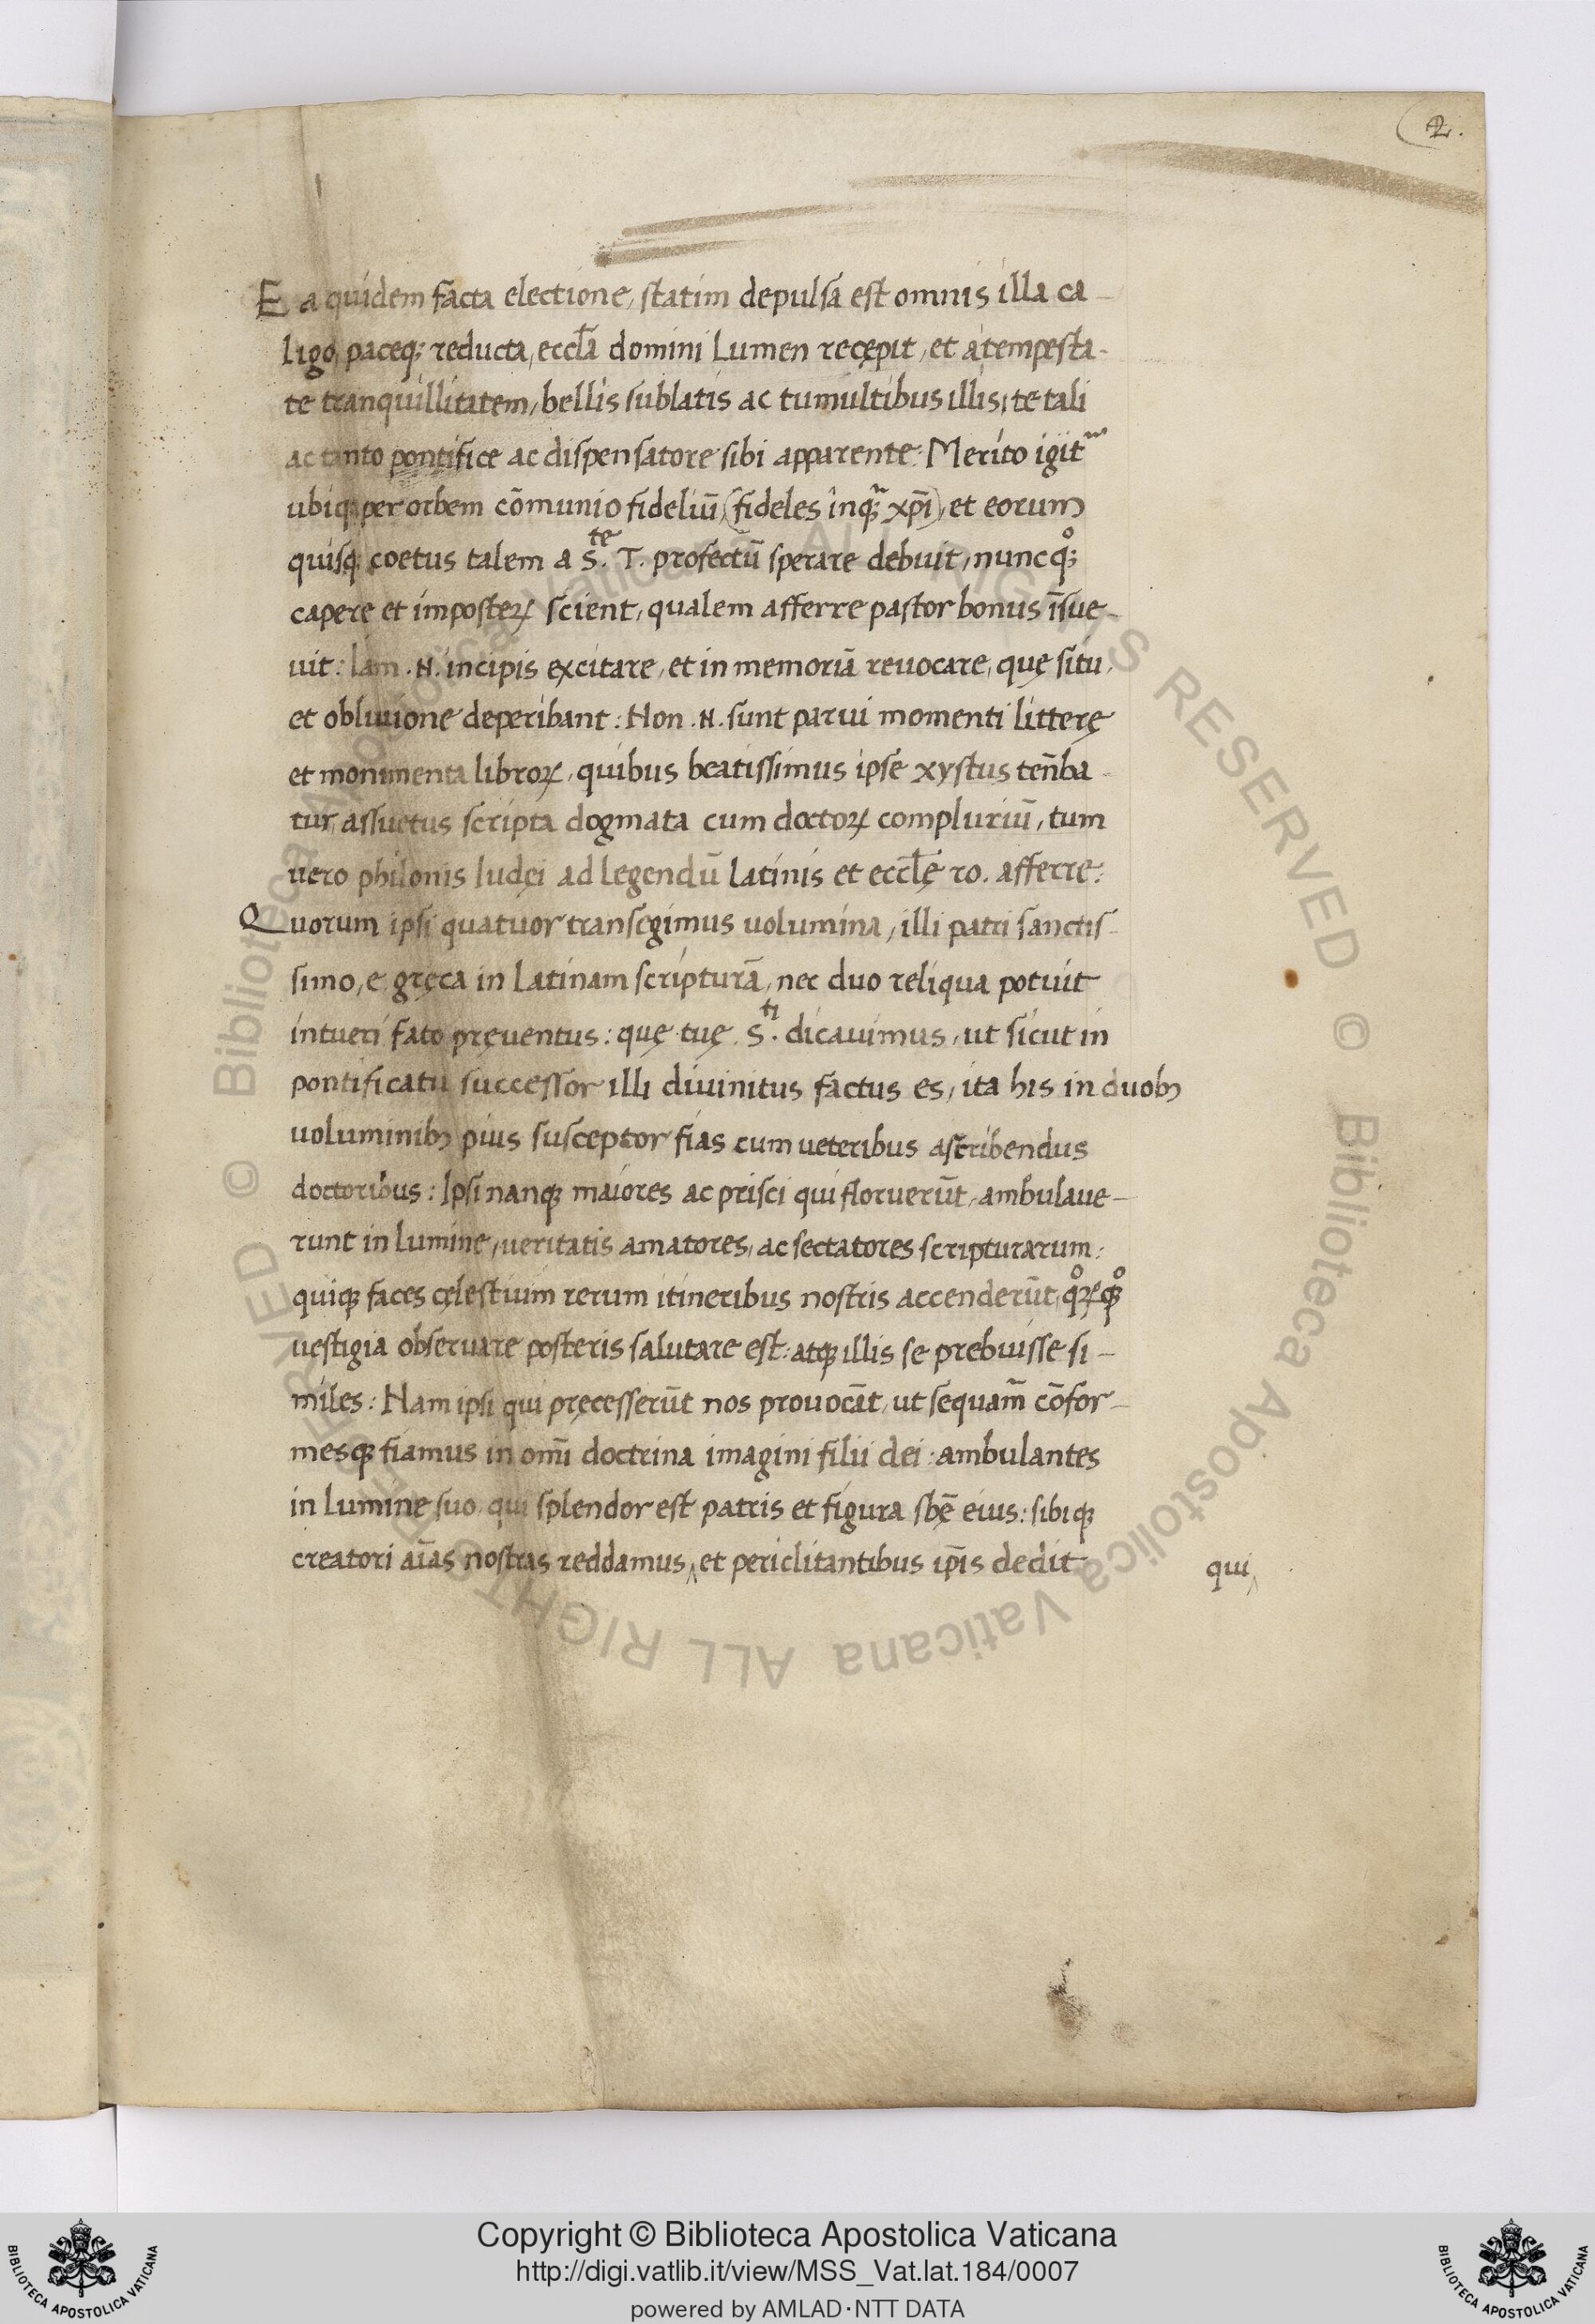 2.
Ea quidem facta electione, statim depulsa est omnis illa ca-
ligo, paceq; reducta, eccl̄a domini lumen recępit, et a tempesta-
te tranquillitatem, bellis sublatis ac tumultibus illis, te tali
ac tanto pontifice ac dispensatore sibi apparente: Merito igit᷑
ubiq; per orbem cōmunio fideliū, (fideles inq; xp̄i), et eorum
quisq; coetus talem a S.te T. profectū sperare debuit, nunc qͦ;
capere et imposteꝝ scient, qualem afferre pastor bonus īsue-
uit: Iam .N. incipis excitare, et in memoriā reuocare, quę situ,
et obliuione deperibant: Non .N. sunt parui momenti litterę
et monimenta libroꝝ, quibus beatissimus ipse xystus ten̄ba-
tur, assuetus scripta dogmata cum doctoꝝ compluriū, tum
uero philonis Iudęi ad legendū latinis et eccl̄ę ro. afferre:
Quorum ipsi quatuor transegimus uolumina, illi patri sanctis-
simo, e gręca in latinam scripturā, nec duo reliqua potuit
intueri fato pręuentus: quę tuę S.ti dicauimus, ut sicut in
pontificatu successor illi diuinitus factus es, ita his in duobꝫ
uoluminibꝫ pius susceptor fias cum ueteribus ascribendus
doctoribus: Ipsi nanqꝫ maiores ac prisci qui floruerūt, ambulaue-
runt in lumine, ueritatis amatores, ac sectatores scripturarum:
quiqꝫ faces cęlestium rerum itineribus nostris accenderūt, qͦꝝqꝫ
uestigia obseruare posteris salutare est: atqꝫ illis se prebuisse si-
miles: Nam ipsi qui pręcesserūt nos prouocāt, ut sequam̄ cōfor-
mesqꝫ fiamus in om̄i doctrina imagini filii dei: ambulantes
in lumine suo, qui splendor est patris et figura sb̄ę eius: sibiqꝫ
creatori aīas nostras reddamus, et periclitantibus ip̄is dedit
qui
© Biblioteca Apostolica Vaticana ALL RIGHTS RESERVED © Biblioteca Apostolica Vaticana ALL RIGHTS RESERVED
Copyright © Biblioteca Apostolica Vaticana
http://digi.vatlib.it/view/MSS_Vat.lat.184/0007
powered by AMLAD·NTT DATA
BIBLIOTECA APOSTOLICA VATICANA
BIBLIOTECA APOSTOLICA VATICANA